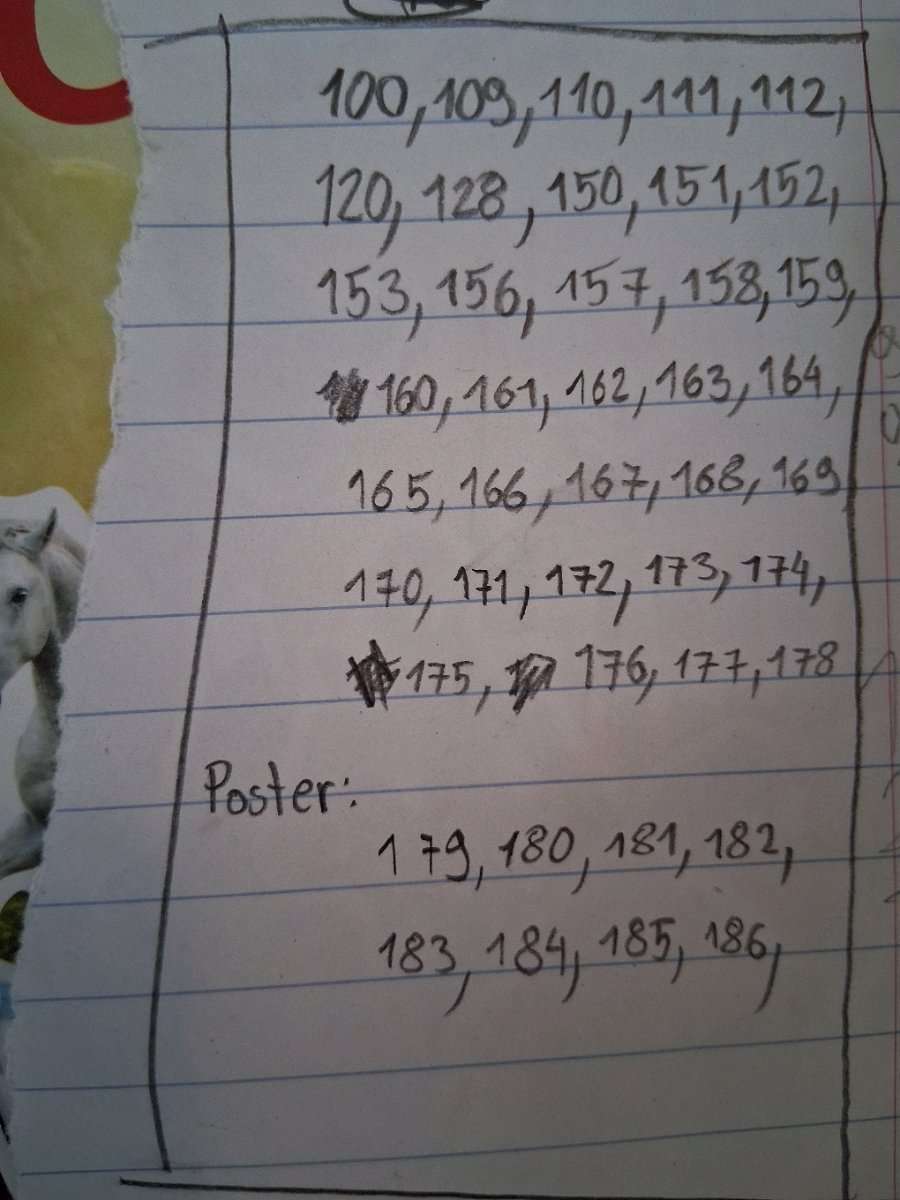 100, 109, 110, 111, 112,
120, 128, 150, 151, 152,
153, 156, 157, 158, 159,
160, 161, 162, 163, 164,
165, 166, 167, 168, 169
170, 171, 172, 173, 174,
175, 176, 177, 178
Poster:
179, 180, 181, 182,
183, 184, 185, 186,